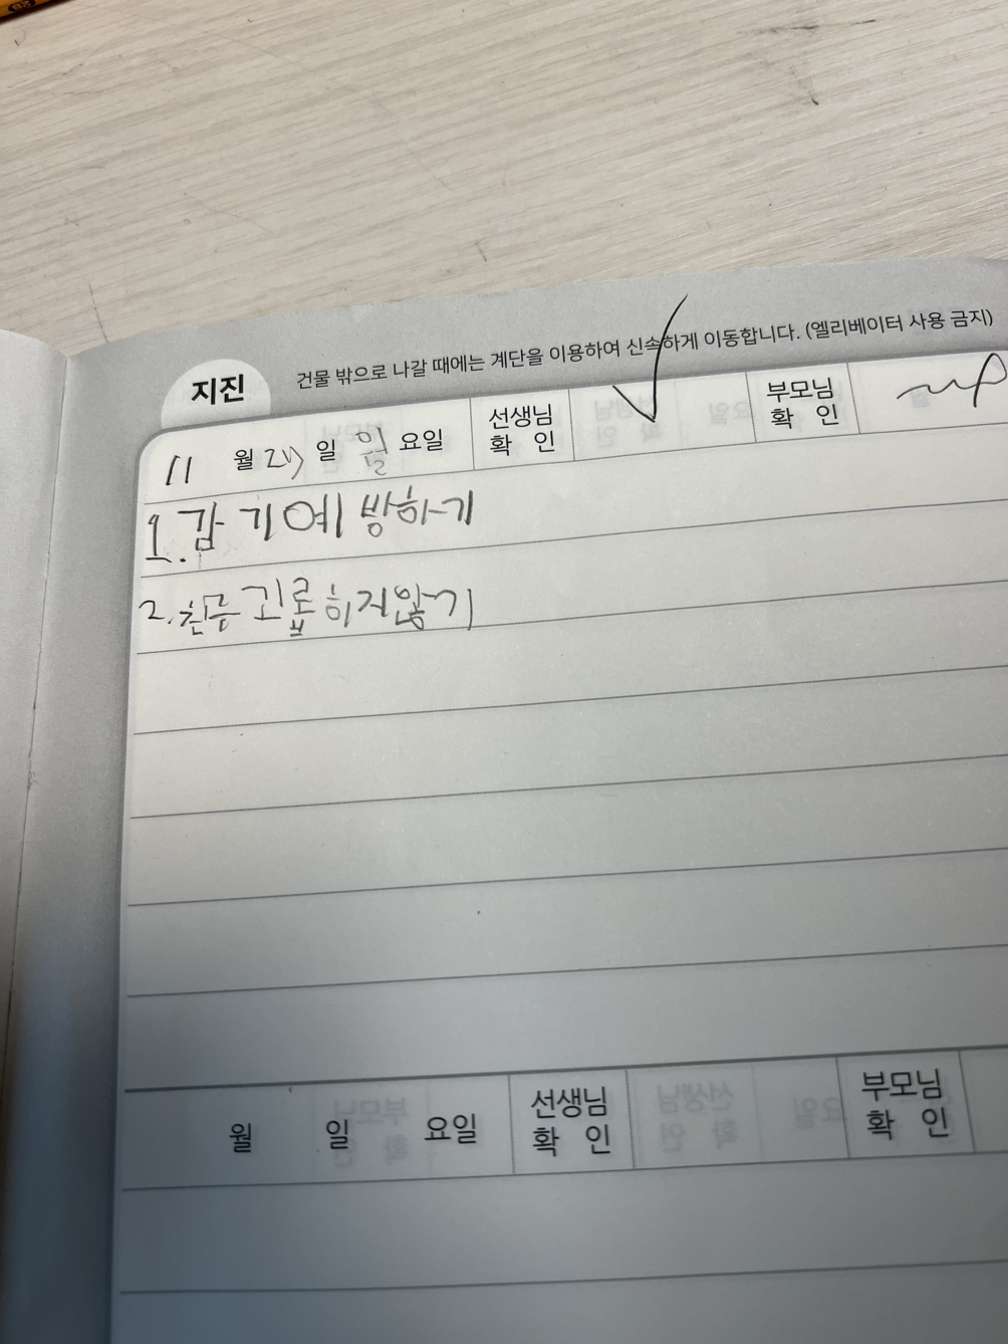 지진 건물 밖으로 나갈 때에는 계단을 이용하여 신속하게 이동합니다. (엘리베이터 사용 금지)
11 월 일 일 요일 선생님 확 인 부모님 확 인
1. 감기예방하기
2. 친구 괴롭히지않기
월 일 요일 선생님 확 인 부모님 확 인